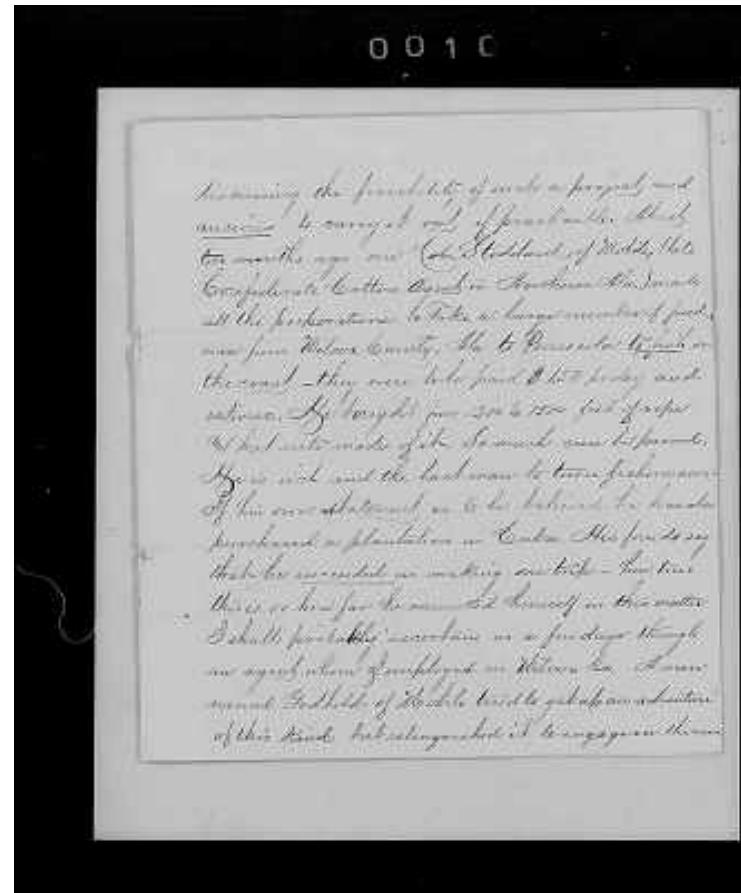 0010
the of such a project and
anxious to carry it out if practicable. About
two months ago one Stoddard of Mobile, (late
Confederate Cotton Agent in Ala.) made
all the preparations to take a large number of freed
men from Wilcox County, Ala to Pensacola to fish on
the coast – they were to be paid and
rations. He bought feet of rope
What nets made of it. So much can be proved.
He is rich and the last man to turn fisherman
If his own statement is to be believed he has also
purchased a plantation in Cuba. His friends say
that he succeeded in making one trip – how true
this is or how far he himself in this matter
I shall probably ascertain in a few days through
an agent whom I employed in Wilcox Co. A man
named of Mobile tried to get up an adventure
of this kind but relinquished it to engage in the